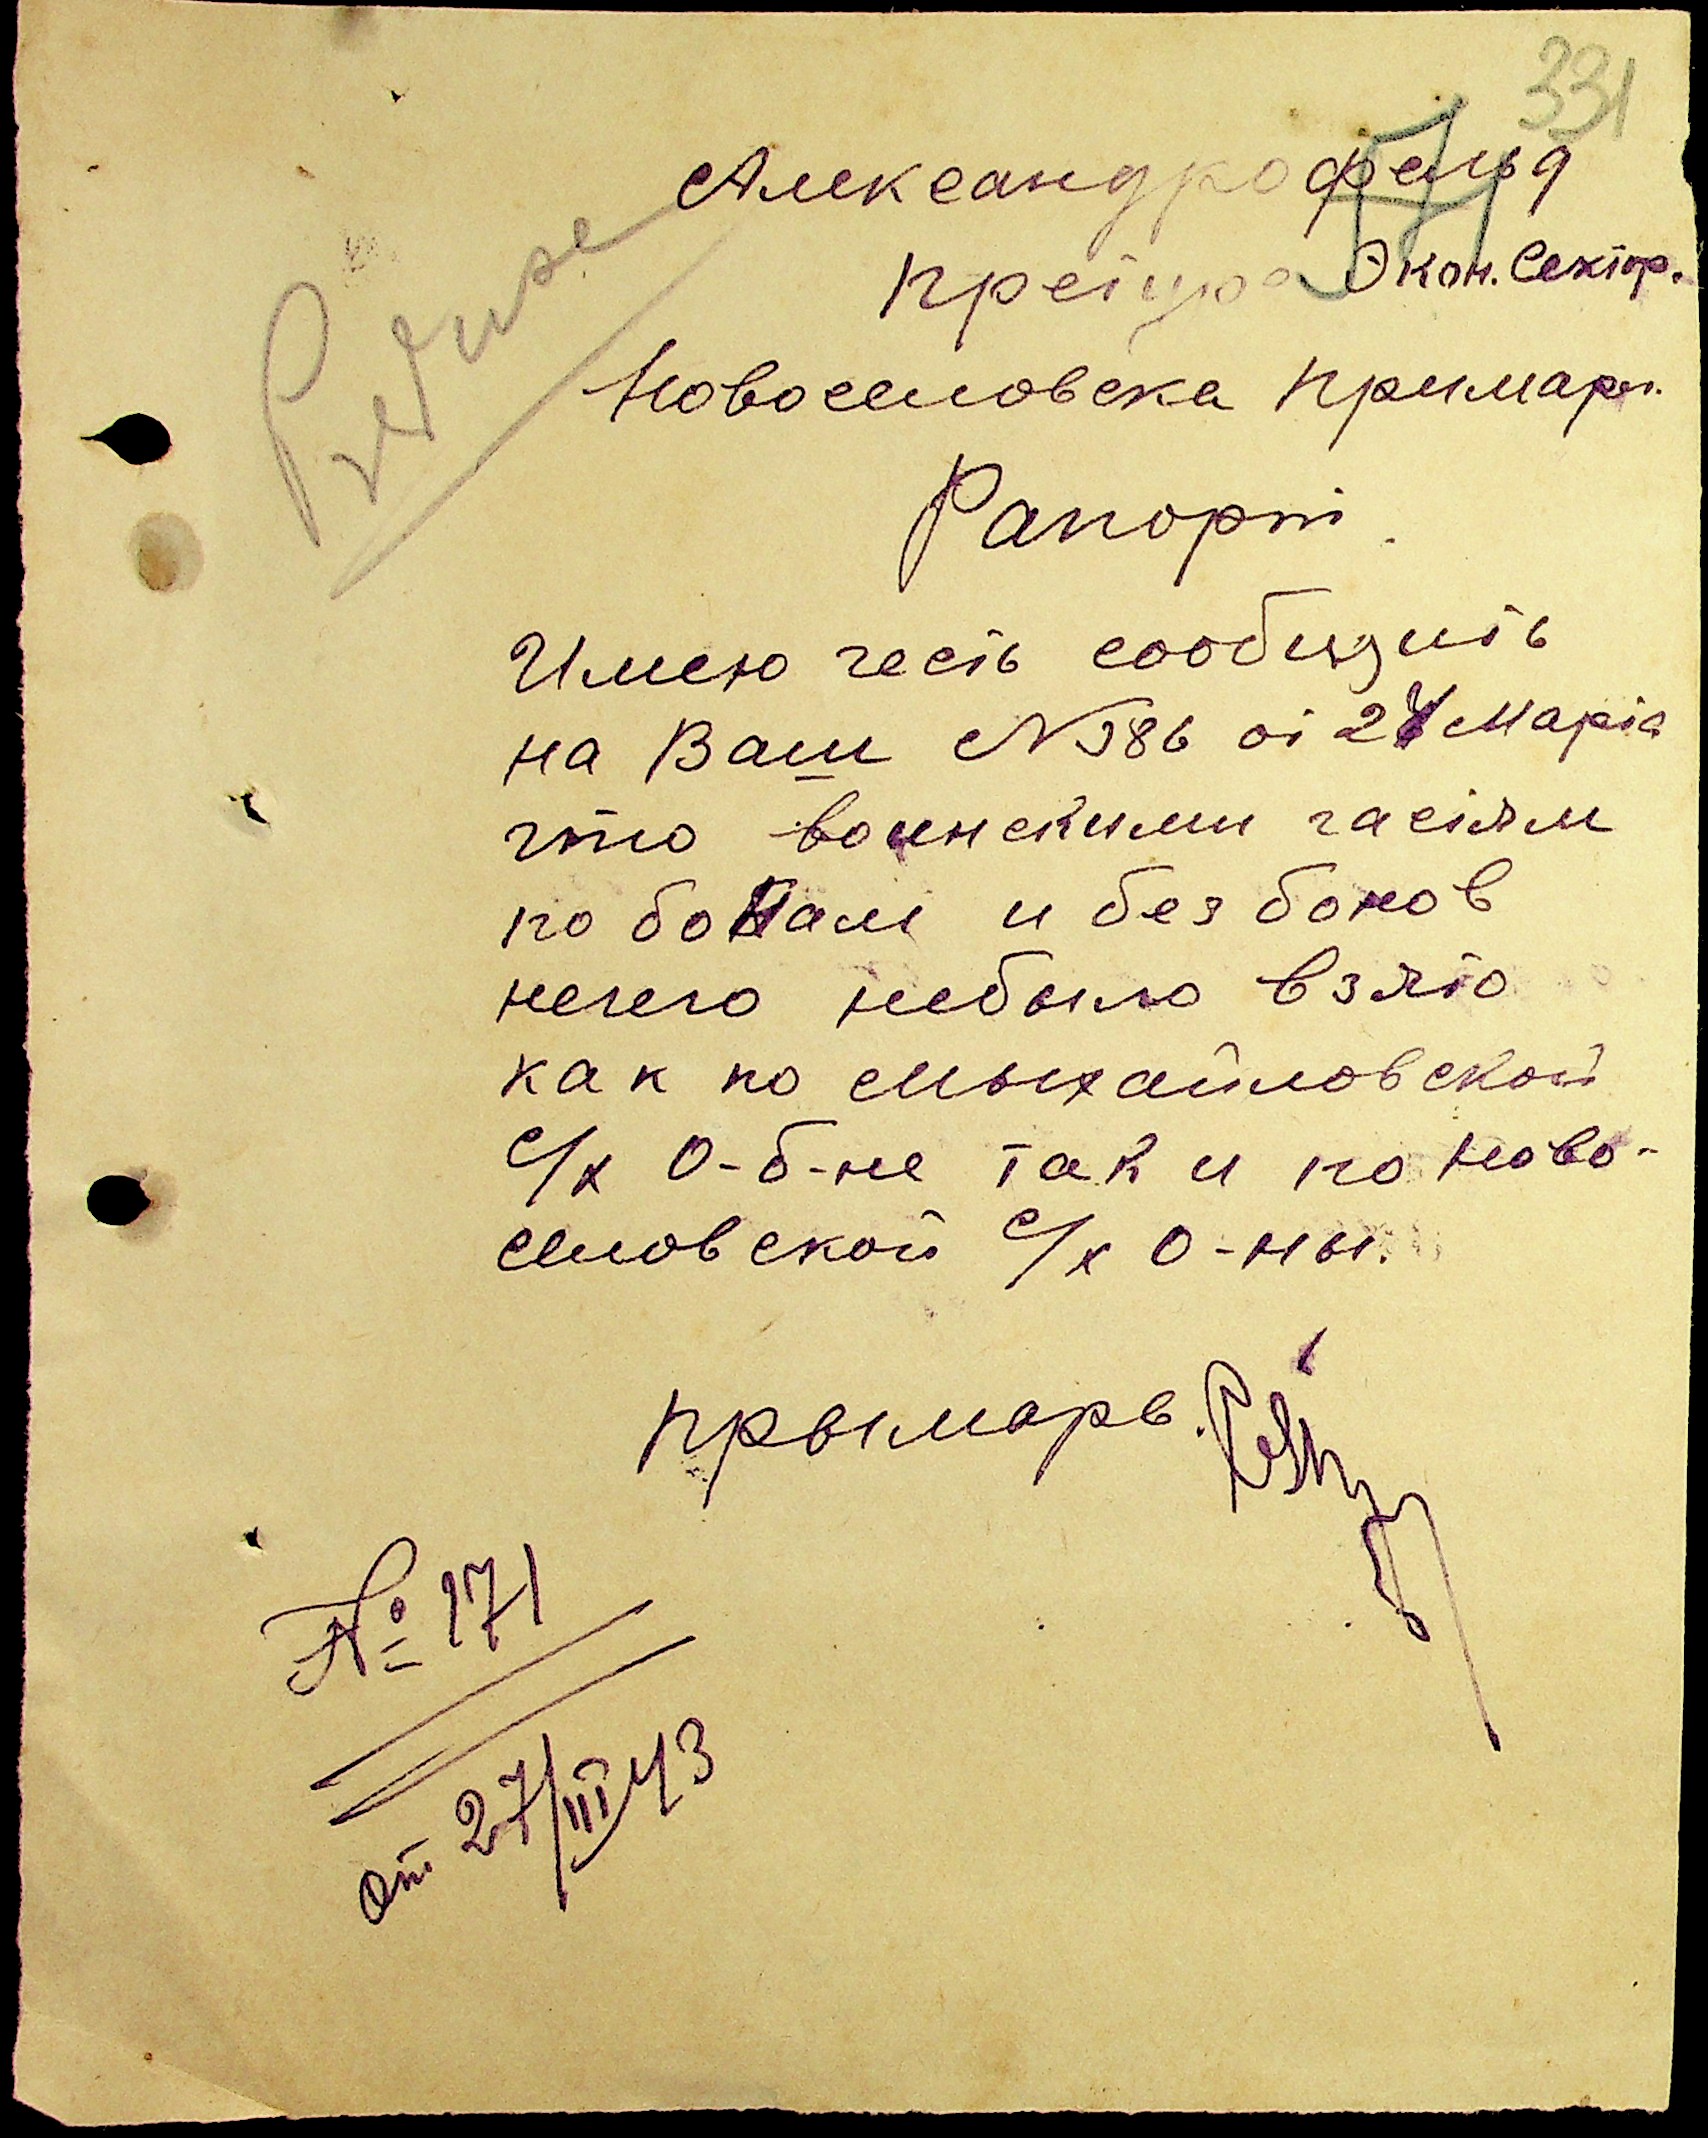 331
Александрофельд
претура Экон. Сектор.
Новоселовска примар.
Рапорт.
Имею честь сообщить
на Ваш №386 от 24 Марта
что воинскими частям
по бонам и без бонов
нечего небыло взято
как по Мыхайловской
с/х О-б-не так и по Ново-
еловской с/х О-ны.
Прымарь.
№ 171
от 27/III 43